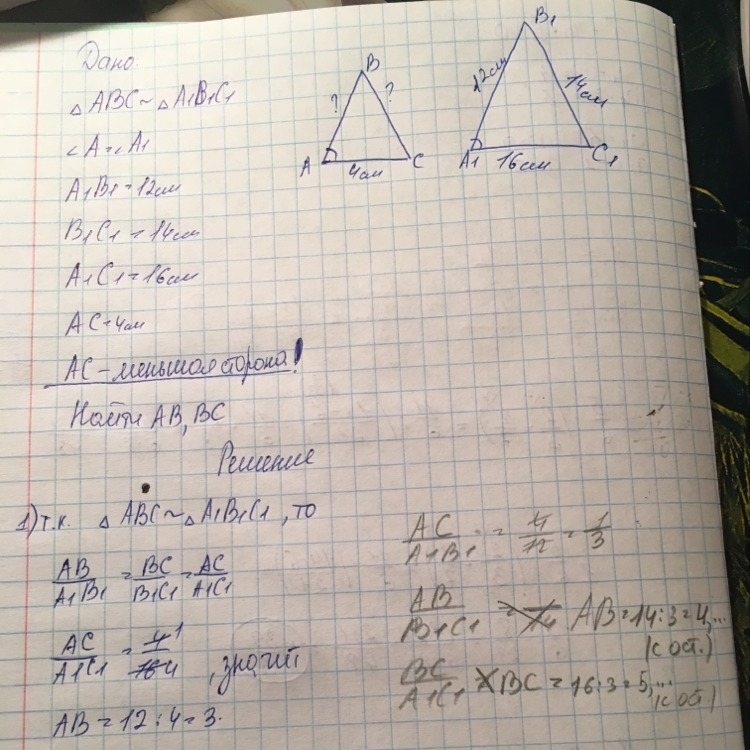 Дано:
△ABC ~ △A1B1C1
∠A = ∠A1
A1B1 = 12см
B1C1 = 14см
A1C1 = 16см
AC = 4см
AC - меньшая сторона!
Найти AB, BC
B
?
?
A
4см
C
B1
12см
14см
A1
16см
C1
Решение
1) т.к. △ABC ~ △A1B1C1, то
AB/A1B1 = BC/B1C1 = AC/A1C1
AC/A1C1 = 4/16 1/4, значит
AB = 12 : 4 = 3.
AC/A1B1 = 4/12 = 1/3
AB/B1C1 = /14 AB = 14 : 3 = 4,...
(с ост.)
BC/A1C1 BC = 16 : 3 = 5,...
(с ост.)